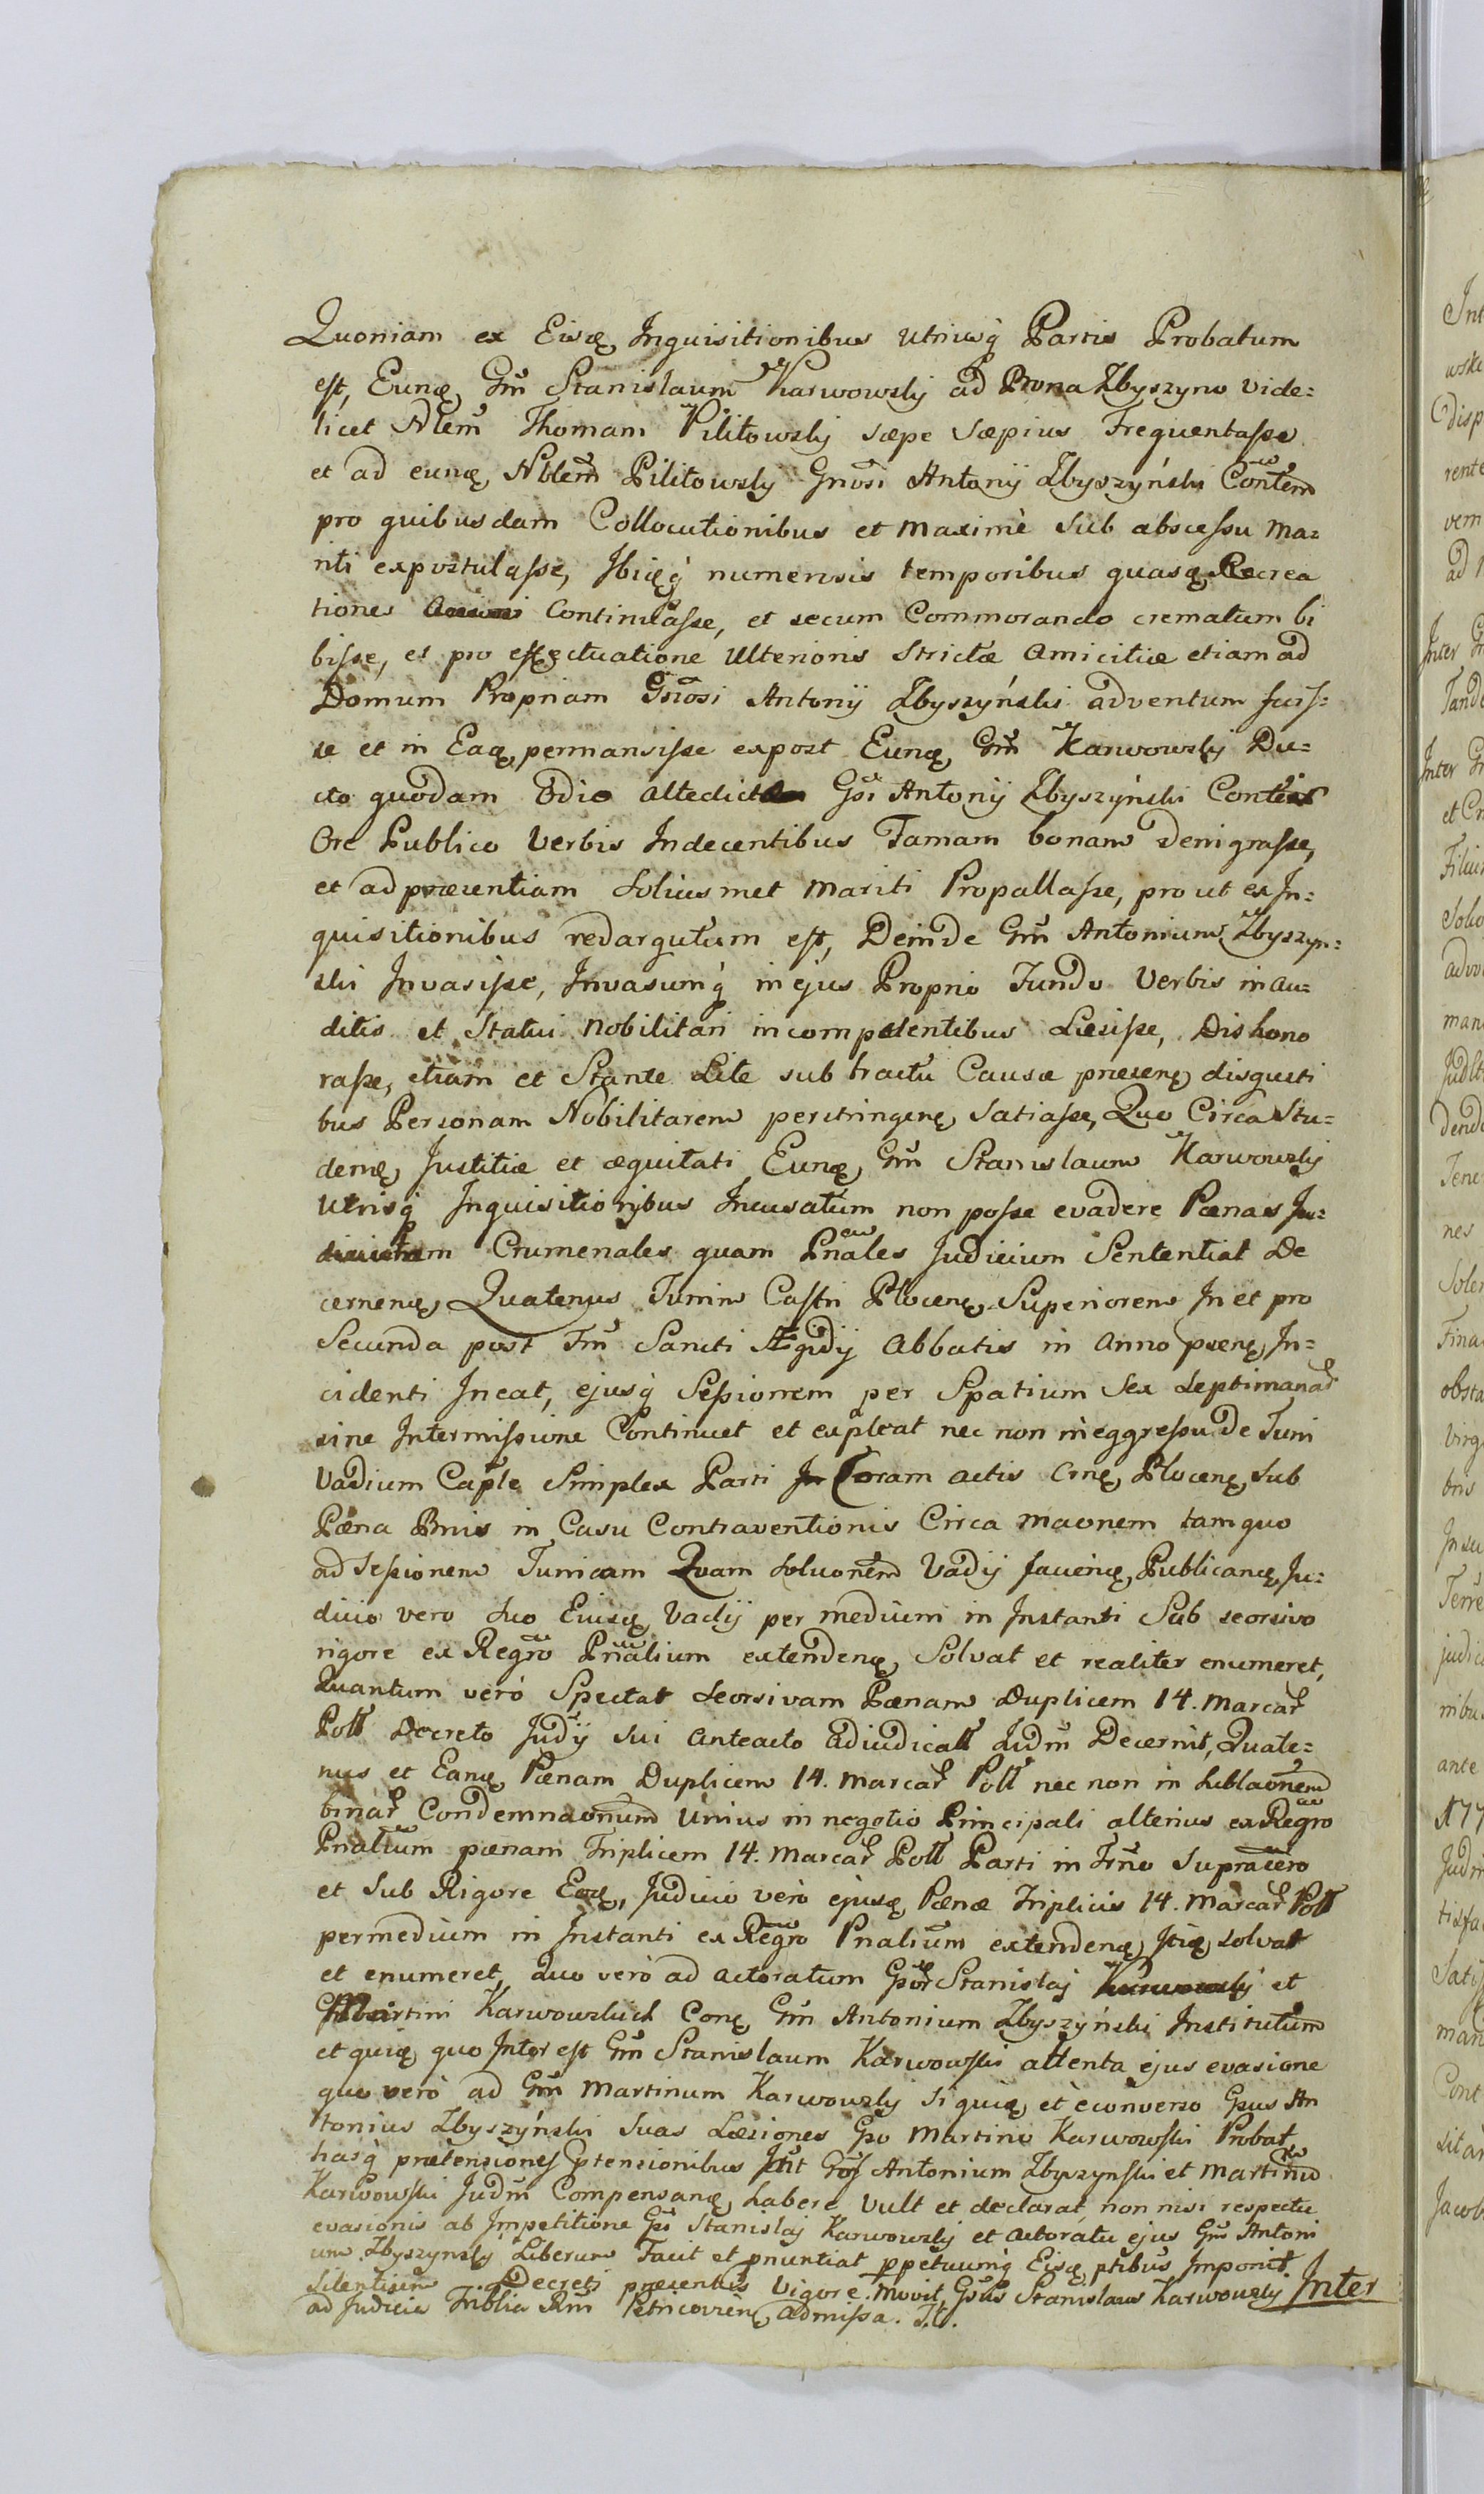 Quoniam ex Eisę, Inquisitionibus utriusq́ Partis Probatum
est, Eunę, Gm̃ Stanislaum Karwowsky ad Prona Zbyszyno vide=
licet Nlem̃ Thomam Pilitowsky sæpe sæpius Frequentasse
et ad eunę, Nblem̃ Pilitowsky Gnõsi Antonij Zbyszyński Contẽm
pro quibusdam Collocutionibus et maximè sub abscessu ma=
riti expostulasse, Ibięq́ numerosis temporibus quasę Recrea
tiones Continuasse, et secum Commorando crematum bi
bisse, et pro effectuatione Ulterioris Strictæ amicitiæ etiam ad
Domum Propriam Gnõsi Antonij Zbyszyński adventum fuis=
se et in Eaę, permansisse expost Eunę, Gm̃ Karwowsky Du=
cto quodam Odio altedictæ Gsi Antonij Zbyszyński Contis
Ore Publico Verbis Indecentibus Famam bonam denigrasse,
et ad præsentiam Soliusmet mariti Propallasse, prout ex In=
quisitionibus redargutum est, Deinde Gm̃ Antonium Zbyszyn=
ski Invasisse, Invasumq́ in ejus Proprio Fundo Verbis inau=
ditis et Statui Nobilitari incompetentibus Læsisse, Dishono
rasse, etiam et Stante Lite sub tractu Causæ præsenę, disgusti
bus Personam Nobilitarem perstringenę, Satiasse, Quo Circa Stu=
denę, Justitiæ et æquitati Eunę, Gm̃ Stanislaum Karwowsky
Utrisq́ Inquisitionibus Incusatum non posse evadere Pænas
tam Crumenales quam Pnales Judicium Sententiat De
cernenę, Quatenus Turrim Castri Plocenę, Superiorem In et pro
Secunda post Fm̃ Sancti Ægidij Abbatis in anno præsenę, In=
cidenti Ineat, ejusq́ Sessionem per Spatium Sex Septimanar̃
sine Intermissione Continuet et expleat nec non in eggressu de Turri
Vadium Caple Simplex Parti Coram actis Crnę, Plocenę, Sub
Pæna Bnis in Casu Contraventionis Circa maonem tam quo
ad Sessionem Turricam Quam Soluonem Vadij facienę, Publicanę, Ju=
dicio vero Suo Eiusę, Vadij per medium in Instanti Sub seorsivo
rigore ex Regro Pnalium extendenę, Solvat et realiter enumeret,
Quantum verò Spectat Seorsivam Pænam Duplicem 14. Marcar̃
Poll Decreto Judij sui anteacto adiudicatt Judm̃ Decernit, Quate=
nus et Eanę, Pænam Duplicem 14. marcar̃ Poll nec non in Sublaonem
binar̃ Condemnaonum Unius in negotio Principali alterius ex Regro
Pnalium pænam Triplicem 14. Marcar̃ Poll Parti in Frno Supracero
et Sub Rigore Eoę, Judicio verò ejusę, Pænæ Triplicis 14. Marcar̃ Poll
permedium in Instanti ex Regro Pnalium extendenę, Itię, solvat
et enumeret, Quo verò ad actoratum Gsor̃ Stanislaj et
Martini Karwowskich Conę, Gm̃ Antonium Zbyszyński Institutum
et quię, quo Interest Gm̃ Stanislaum Karwowski attenta ejus evasione
quo verò ad Gm̃ Martinum Karwowsky siquię, et èconverso Gsus An
tonius Zbyszyński Suas Læsiones Gso Martino Karwowski Probat
hasq́ prætensiones Ptensionibus Int̃ Gos Antonium Zbyszynski et Martinũ
Karwowski Judm̃ Compensanę, habere Vult et declarat, non nisi respectu
evasionis ab Impetitione Gsi Stanislaj Karwowsky et actoratu ejus Gm̃ Antoni
um Zbyszynsky Liberum Facit et pnuntiat ppetuumq́ Eisę, ptibus Imponit
Silentium Decreti præsentis Vigore. Movit Gsus Stanislaus Karwowsky Inter
ad Judicia Triblia Rni Petricovienę, Admissa. J.S.